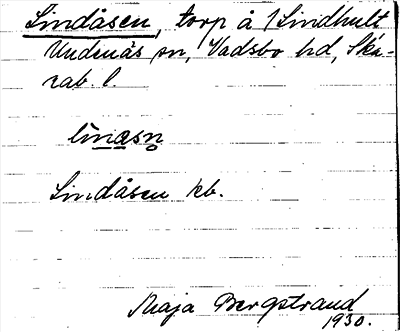 Lindåsen, torp å 1 Lindhult
Undenäs sn, Vadsbo hd, Ska-
rab. l.
linasn
Lindåsen kb.
Maja Bergstrand
1930.